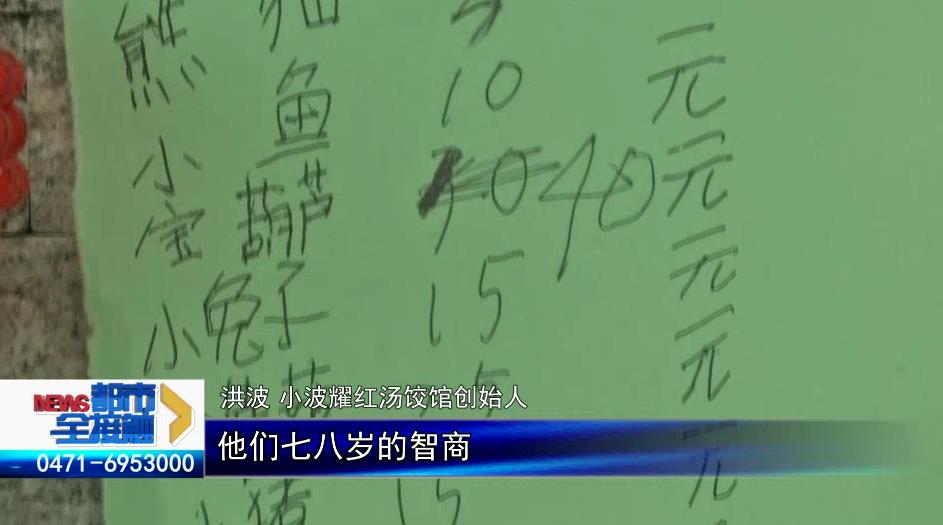 熊猫 5 元
鱼 10 元
小宝葫芦 10 40 元
小兔子 15 元
元
小猪 15 元
洪波 小波耀红汤饺馆创始人
NEWS 都市全接触
他们七八岁的智商
0471-6953000